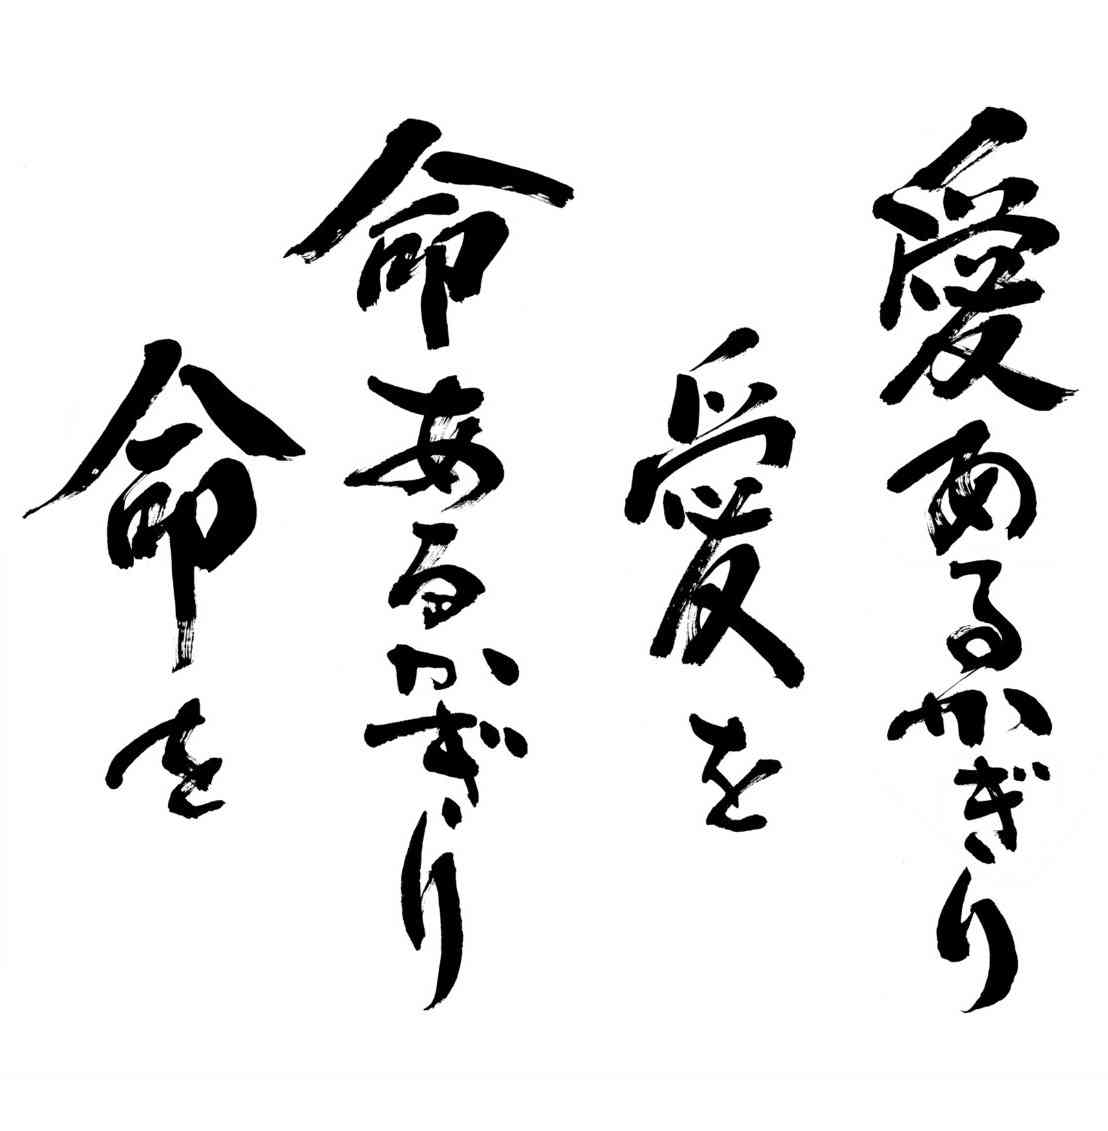 愛あるかぎり
愛を
命あるかぎり
命を